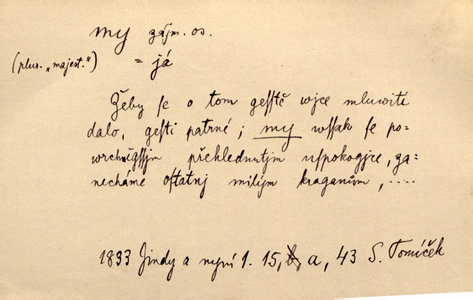 my zájm. os.
(plur. „majest.") = já
Žeby se o tom gesstě wjce mluwiti
dalo, gesti patrné; my wssak se po-
wrchněgssjm přehlednutjm uspokogjce, za-
necháme ostatnj milým kraganům, ....
1833 Jindy a nynj 1. 15, b, a, 43 S. Tomíček